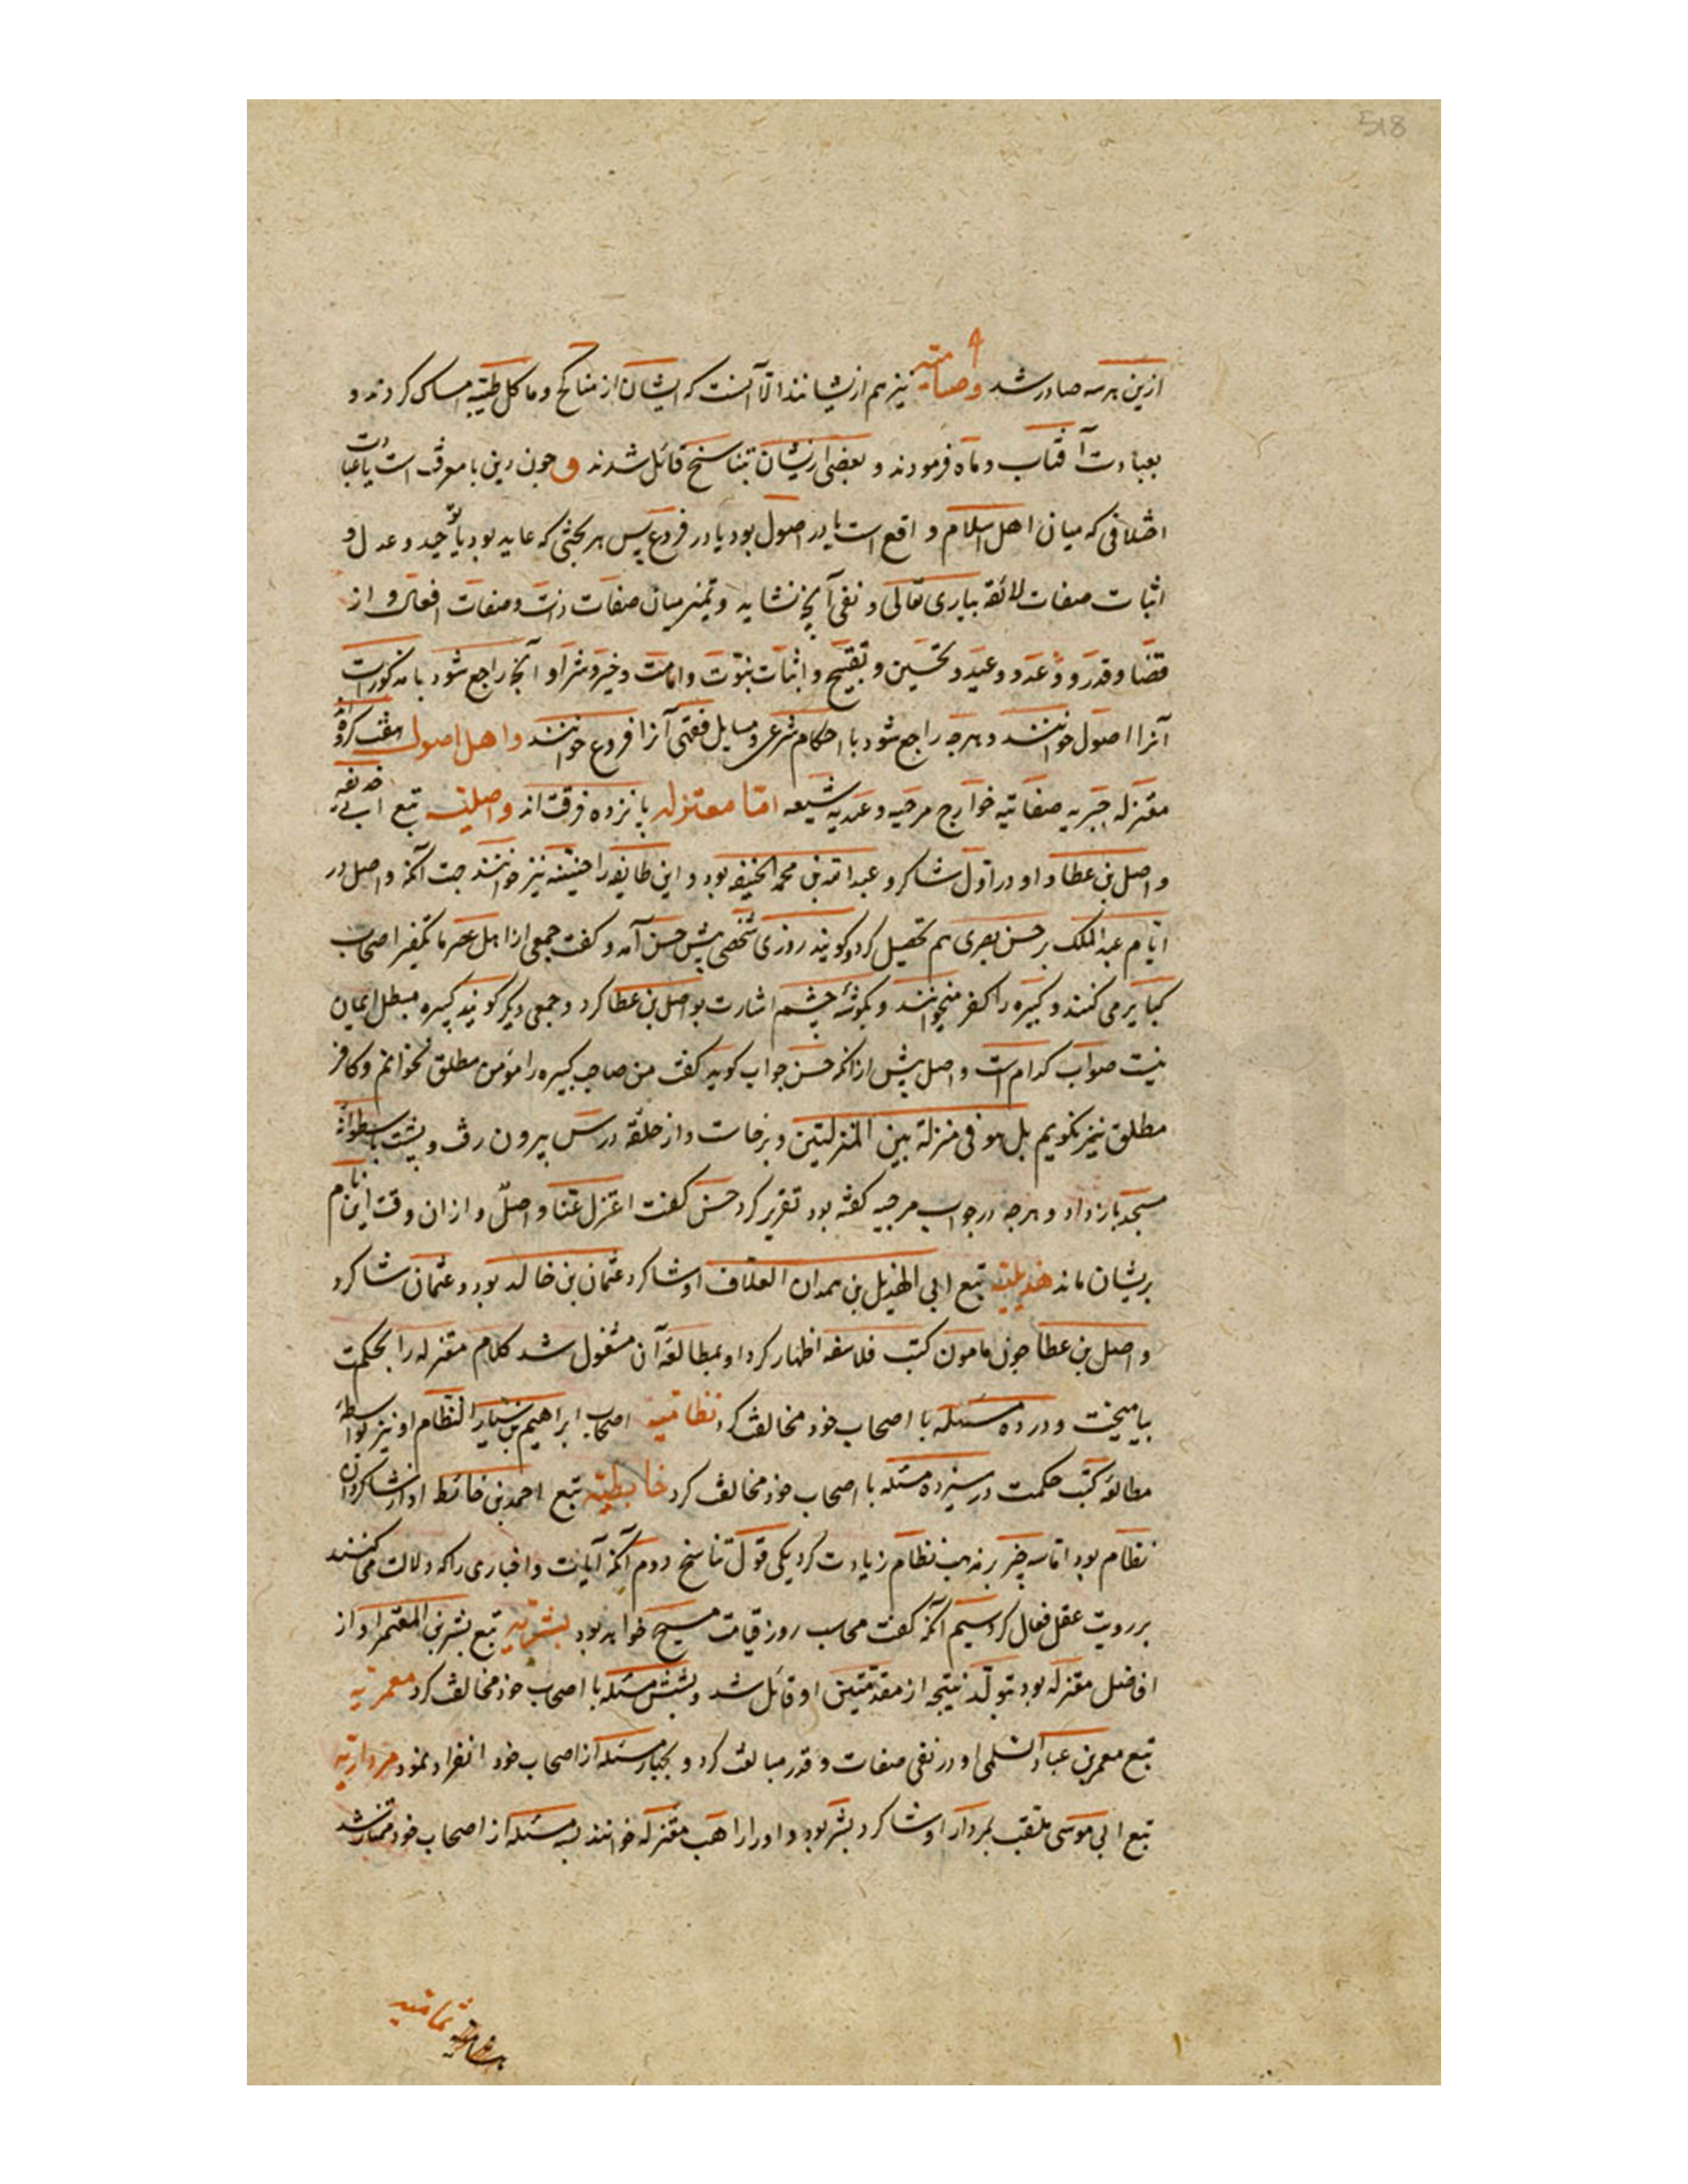 518
ازین هر سه صادر شد وصیامیه نیز هم ازیشانند الا آنست که ایشان از مناکح و ماکل طیبه امساک کردند و
بعبادت آفتاب و ماه فرمودند و بعضی ازیشان بتناسخ قائل شدند و چون این با معرفت است یا عبادت
اختلافی که میان اهل اسلام واقع است یا در اصول بود یا در فروع پس هر بحثی که عاید بود با توحید و عدل و
اثبات صفات لائقه بباری تعالی و نفی آنچه نشاید و تمیز میان صفات ذات و صفات افعال و از
قضا و قدر و وعد و وعید و تحسین و تقبیح و اثبات نبوت و امامت و خیر و شر او آنچه راجع شود با مذکورات
آنرا اصول خوانند و هرچه راجع شود با احکام شرعی و مسایل فقهی آنرا فروع خوانند و اهل اصول هفت گروه‌اند
معتزله جبریه صفاتیه خوارج مرجیه وعیدیه شیعه اما معتزله پانزده فرقت‌اند واصلیه تبع ابی حذیفه
واصل بن عطا و او در اول شاکرد عبدالله بن محمد الحنفیه بود و این طایفه را حنیفیه نیز خوانند جهت آنکه واصل در
ایام عبدالملک بر حسن بصری هم تحصیل کرد و کویند روزی شخصی پیش حسن آمد و کفت جمعی از اهل عصر ما تکفیر اصحاب
کبایر می کنند و کبیره را کفر میخوانند و بکوشه چشم اشارت بواصل بن عطا کرد و جمعی دیکر کویند کبیره مبطل ایمان
نیست صواب کدام است واصل پیش از آنکه حسن جواب کوید کفت من صاحب کبیره را مؤمن مطلق نخوانم و کافر
مطلق نیز نکویم بل هو فی منزلة بین المنزلتین و برخاست و از حلقه درس بیرون رفت و پشت باسطوانه
مسجد باز داد و هرچه در جواب مرجیه کفته بود تقریر کرد حسن کفت اعتزل عنا واصل و از ان وقت این نام
بریشان ماند هذیلیه تبع ابی الهذیل بن حمدان العلاف او شاکرد عثمان بن خالد بود و عثمان شاکرد
واصل بن عطا چون مامون کتب فلاسفه اظهار کرد او بمطالعه آن مشغول شد کلام معتزله را بحکمت
بیامیخت و در ده مسئله با اصحاب خود مخالفت کرد نظامیه اصحاب ابراهیم بن سیار النظام او نیز بواسطه
مطالعه کتب حکمت در سیزده مسئله با اصحاب خود مخالفت کرد خابطیه تبع احمد بن خائط او از شاکردان
نظام بود اما سه چیز بر مذهب نظام زیادت کرد یکی قول تناسخ دوم آنکه آیات و اخباری را که دلالت می کنند
بر رویت عقل فعال کرد سیم آنکه کفت محاسب روز قیامت مسیح خواهد بود بشریه تبع بشر بن المعتمر او از
افاضل معتزله بود بتولد نتیجه از مقدمتین او قائل شد و بشش مسئله با اصحاب خود مخالفت کرد معمریه
تبع معمر بن عباد السلمی او در نفی صفات و قدر مبالغت کرد و بچهار مسئله از اصحاب خود انفراد نمود مرداریه
تبع ابی موسی ملقب بمردار او شاکرد بشر بود و او را راهب معتزله خوانند بسه مسئله از اصحاب خود ممتاز شد
ثمامیه